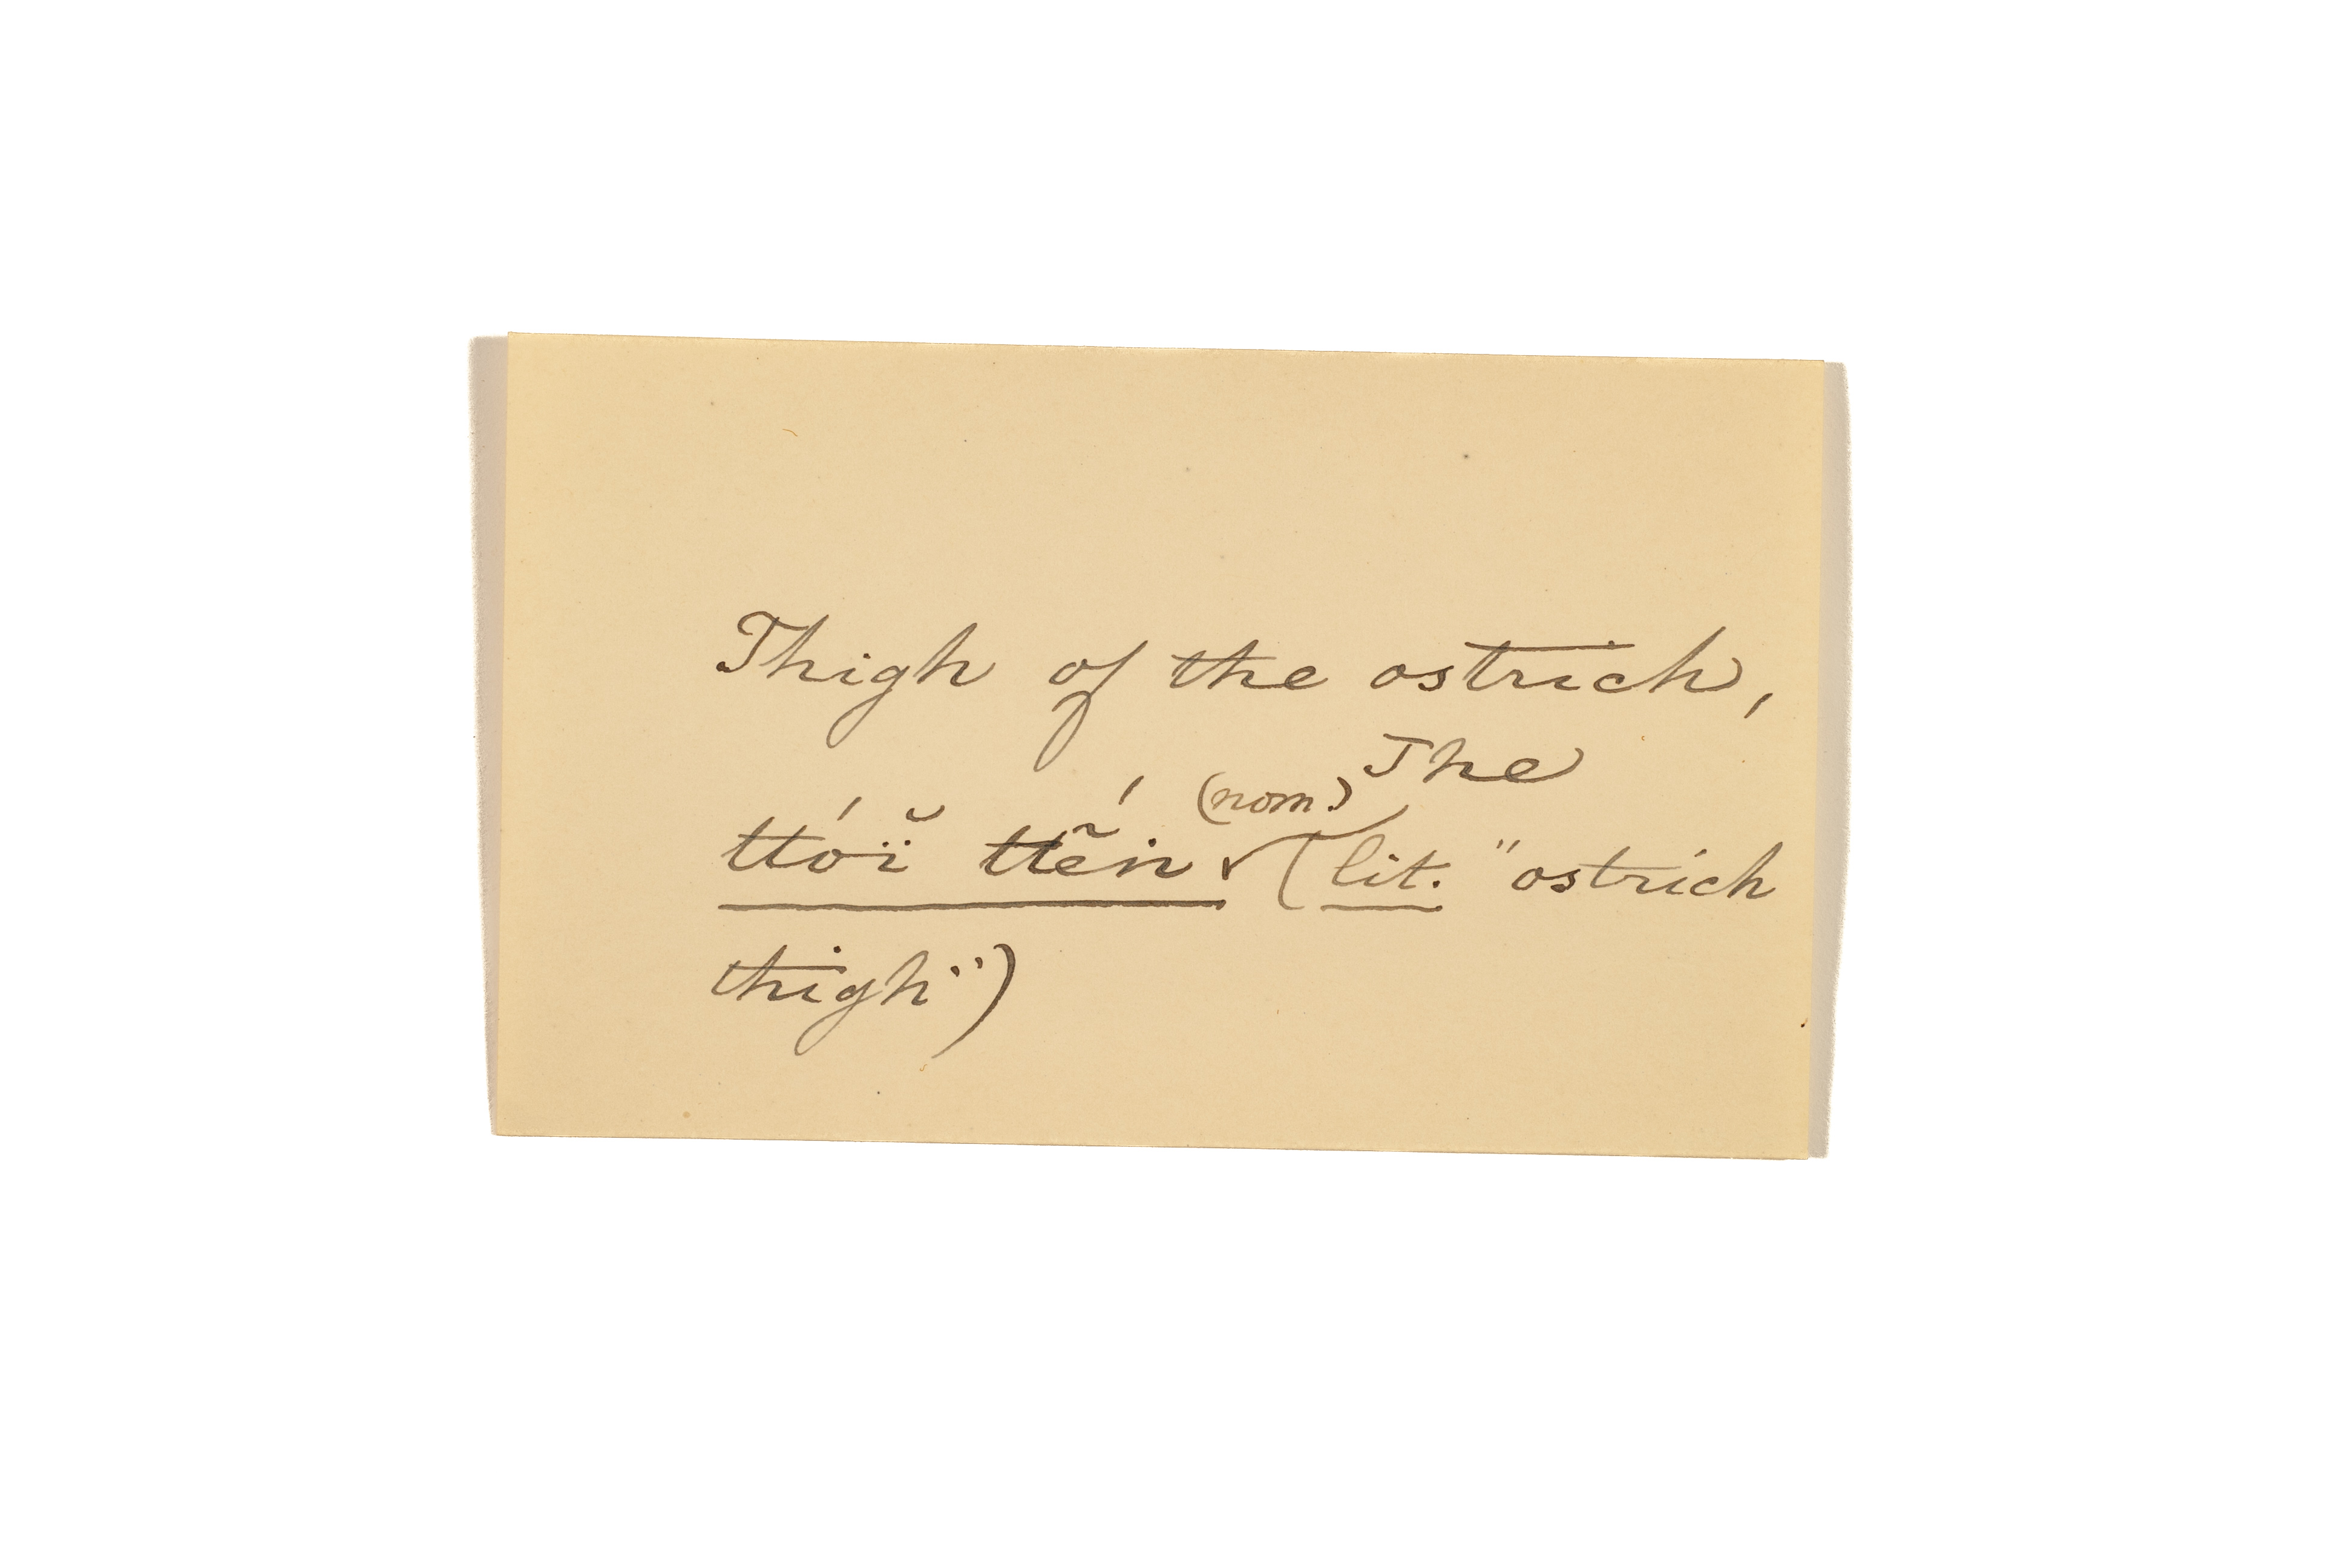 Thigh of the ostrich,
The
ttóï̆ ttẽ́n (nom.) (lit. "ostrich
thigh")